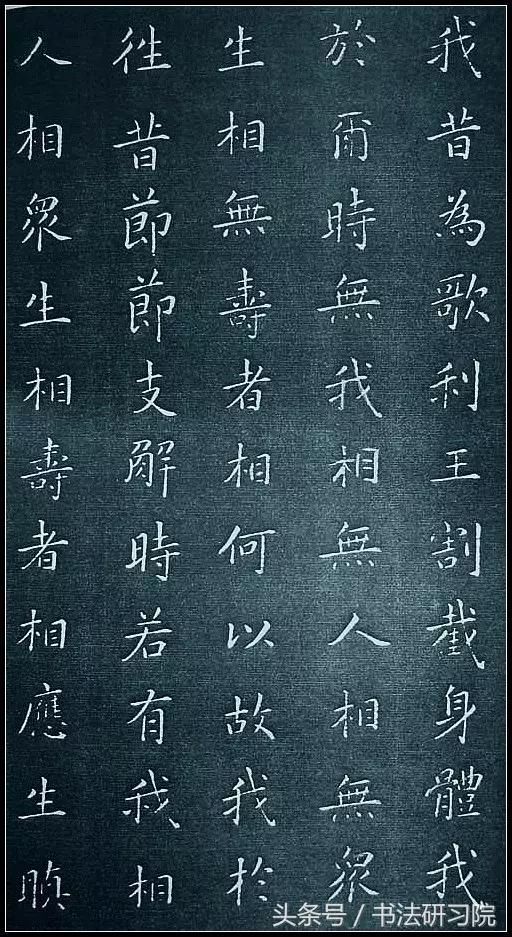 我昔為歌利王割截身體我
於爾時無我相無人相無衆
生相無壽者相何以故我於
往昔節節支解時若有我相
人相衆生相壽者相應生瞋
头条号/书法研习院